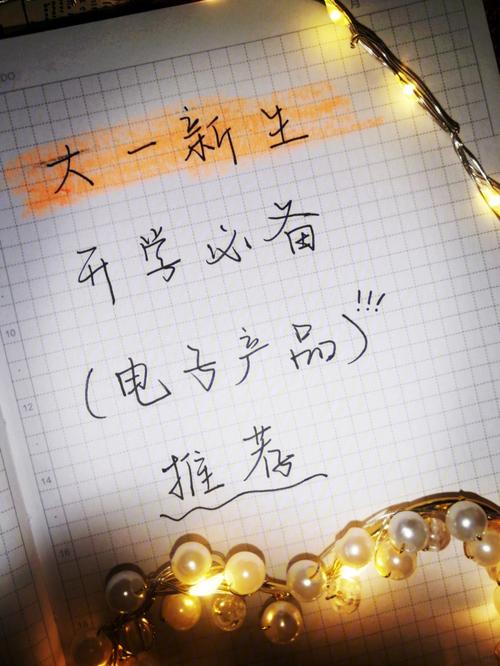 大一新生
开学必备
(电子产品)!!!
推荐
10
12
14
16